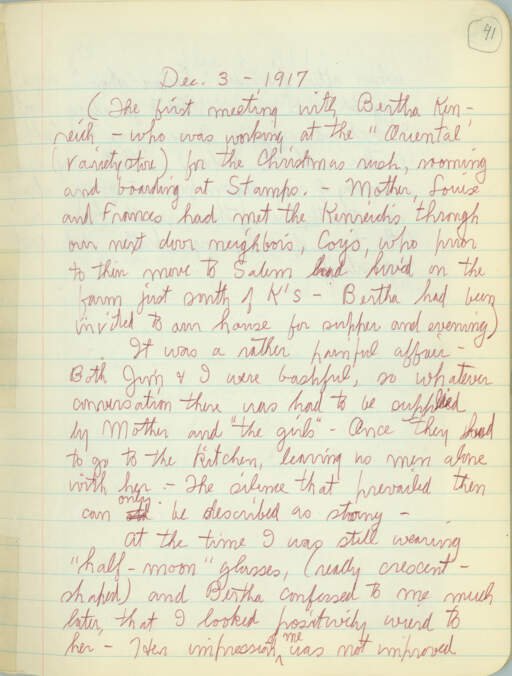 41
Dec. 3 - 1917
(The first meeting with Bertha Ken-
reich, - who was working at the "Oriental"
(variety store) for the Christmas rush, rooming
and boarding at Stamps. - Mother, Louise
and Frances had met the Kenreichs through
our next door neighbors, Coys, who prior
to their move to Salem had lived on the
farm just south of K's - Bertha had been
invited to our house for supper and evening)
It was a rather painful affair -
Both Jim & I were bashful, so whatever
conversation there was had to be supplied
by Mother and "the girls" - Once they had
to go to the kitchen, leaving us men alone
with her - The silence that prevailed then
can only be described as strong -
At the time I was still wearing
"half-moon" glasses, (really crescent-
shaped) and Bertha confessed to me much
later, that I looked positively weird to
her - Her impression of me was not improved